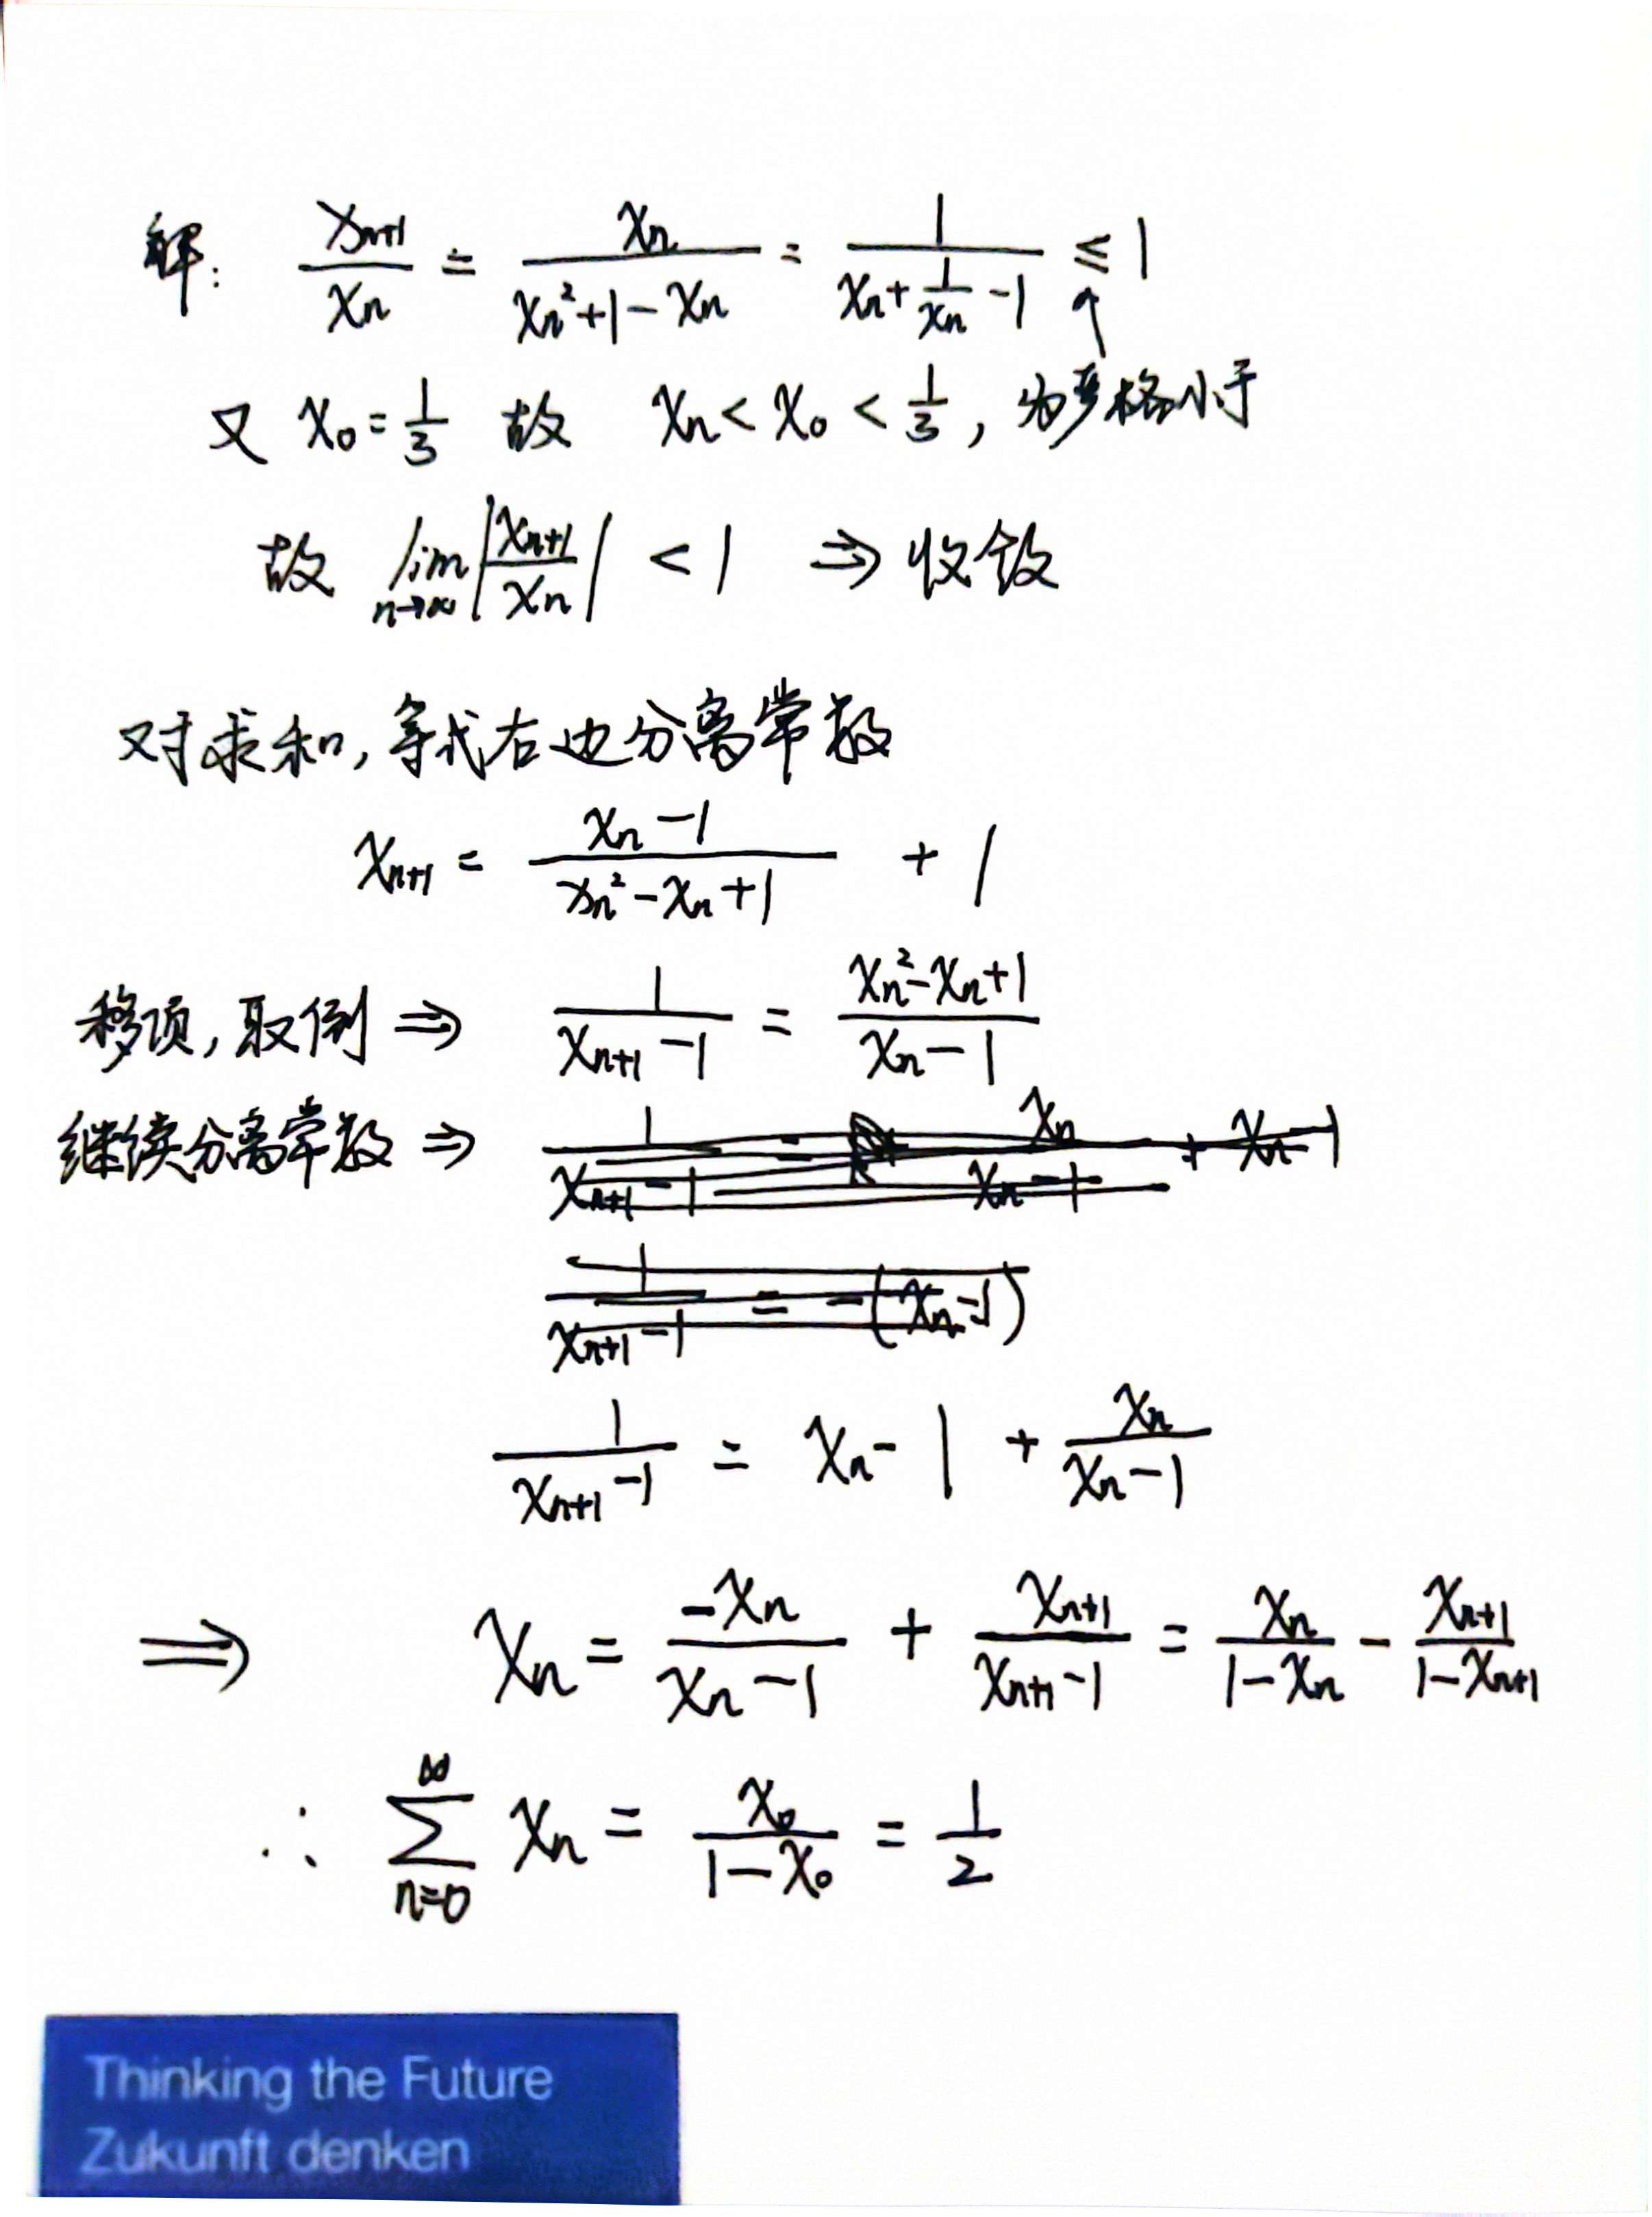 解: x_{n+1}/x_n = x_n/(x_n²+1-x_n) = 1/(x_n+1/x_n-1) ≤ 1
↑
又 x₀=1/3 故 x_n < x₀ < 1/3, 为严格小于
故 lim_{n→∞} |x_{n+1}/x_n| < 1 ⇒ 收敛
对求和, 等式右边分离常数
x_{n+1} = (x_n-1)/(x_n²-x_n+1) + 1
移项, 取倒 ⇒ 1/(x_{n+1}-1) = (x_n²-x_n+1)/(x_n-1)
继续分离常数 ⇒
1/(x_{n+1}-1) = -(x_n-1)
1/(x_{n+1}-1) = x_n-1 + x_n/(x_n-1)
⇒ x_n = -x_n/(x_n-1) + x_{n+1}/(x_{n+1}-1) = x_n/(1-x_n) - x_{n+1}/(1-x_{n+1})
∴ ∑_{n=0}^{∞} x_n = x₀/(1-x₀) = 1/2
Thinking the Future
Zukunft denken